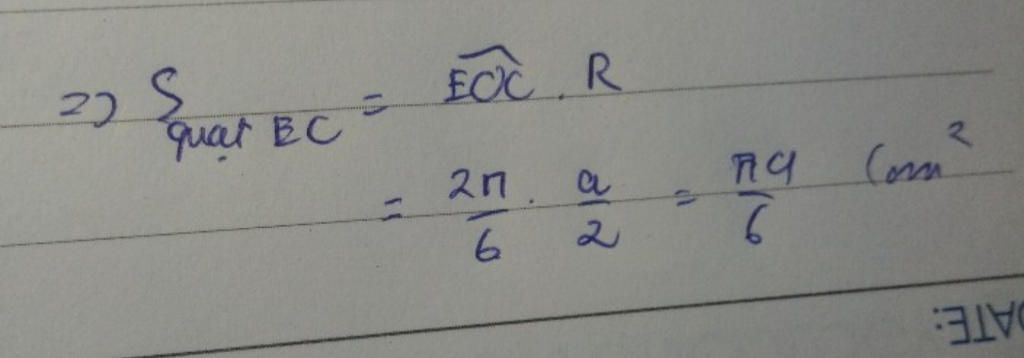 => S quạt EC = \widehat{EOC} . R
= \frac{2π}{6} . \frac{a}{2} = \frac{πa}{6} (cm²
DATE: